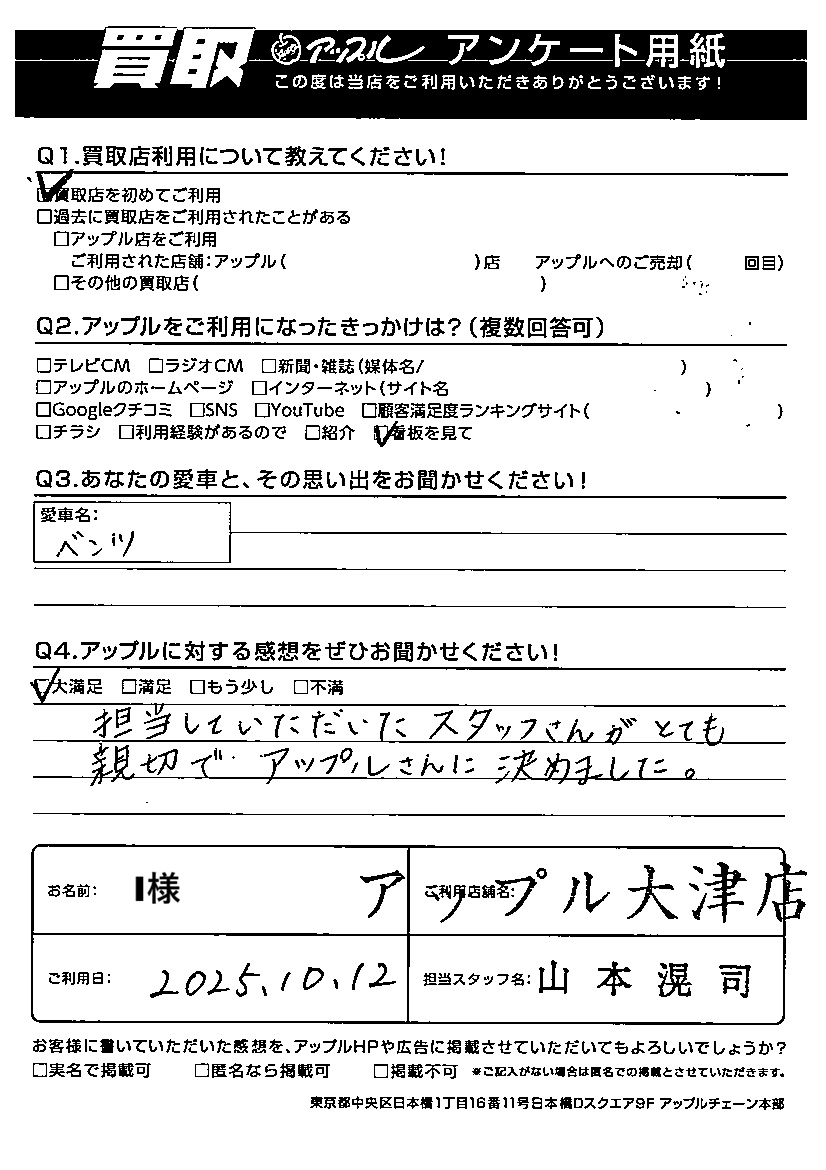 買取 アップル アンケート用紙
この度は当店をご利用いただきありがとうございます!
Q1.買取店利用について教えてください!
☑買取店を初めてご利用
□過去に買取店をご利用されたことがある
□アップル店をご利用
ご利用された店舗:アップル( )店 アップルへのご売却( 回目)
□その他の買取店( )
Q2.アップルをご利用になったきっかけは?(複数回答可)
□テレビCM □ラジオCM □新聞・雑誌(媒体名/ )
□アップルのホームページ □インターネット(サイト名 )
□Googleクチコミ □SNS □YouTube □顧客満足度ランキングサイト( )
□チラシ □利用経験があるので □紹介 ☑看板を見て
Q3.あなたの愛車と、その思い出をお聞かせください!
愛車名:
ベンツ
Q4.アップルに対する感想をぜひお聞かせください!
☑大満足 □満足 □もう少し □不満
担当していただいた スタッフさんが とても
親切で アップルさんに 決めました。
お名前: I様 ご利用店舗名: アップル大津店
ご利用日: 2025.10.12 担当スタッフ名: 山本滉司
お客様に書いていただいた感想を、アップルHPや広告に掲載させていただいてもよろしいでしょうか?
□実名で掲載可 □匿名なら掲載可 □掲載不可 ※ご記入がない場合は匿名での掲載とさせていただきます。
東京都中央区日本橋1丁目16番11号日本橋Dスクエア9F アップルチェーン本部